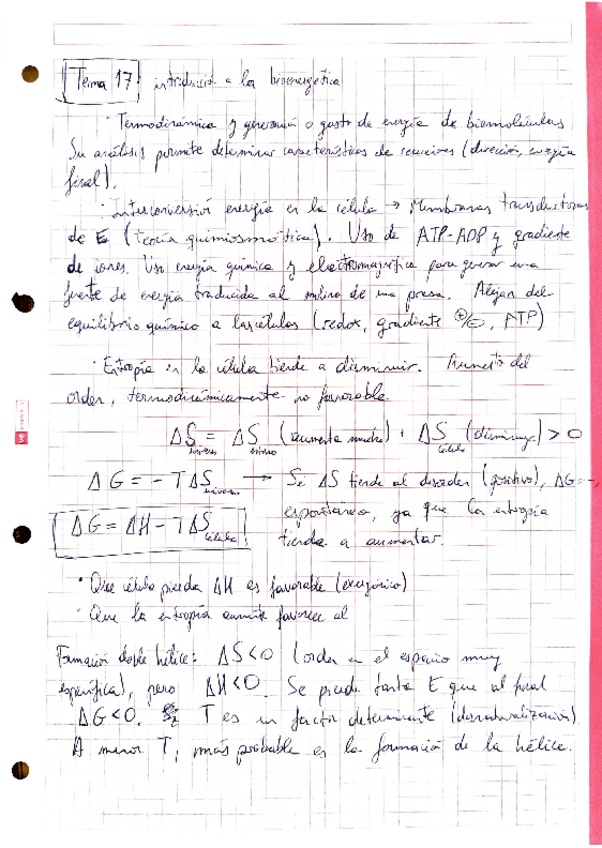 Tema 17: introducción a la bioenergética
· Termodinámica y generación o gasto de energía de biomoléculas.
Su análisis permite determinar características de reacciones (dirección, energía
final).
· Interconversión energía en la célula → Membranas transductoras
de E (teoría quimiosmótica). Uso de ATP-ADP y gradiente
de iones. Uso energía química y electromagnética para generar una
fuente de energía traducida al molino de una presa. Alejan del
equilibrio químico a las células (redox, gradiente ⊕/⊖, ATP)
· Entropía en la célula tiende a disminuir. Aumento del
orden, termodinámicamente no favorable
ΔS universo = ΔS entorno (aumenta mucho) + ΔS célula (disminuye) > 0
ΔG = - TΔS universo → Si ΔS tiende al desorden (positivo), ΔG = -,
espontáneo, ya que la entropía
ΔG = ΔH - TΔS célula
tiende a aumentar.
· Que célula pierda ΔH es favorable (exergónico)
· Que la entropía aumente favorece al
Formación doble hélice: ΔS<0 (orden en el espacio muy
específica), pero ΔH<0. Se pierde tanta E que al final
ΔG<0. T es un factor determinante (desnaturalización)
A menor T, más probable es la formación de la hélice.